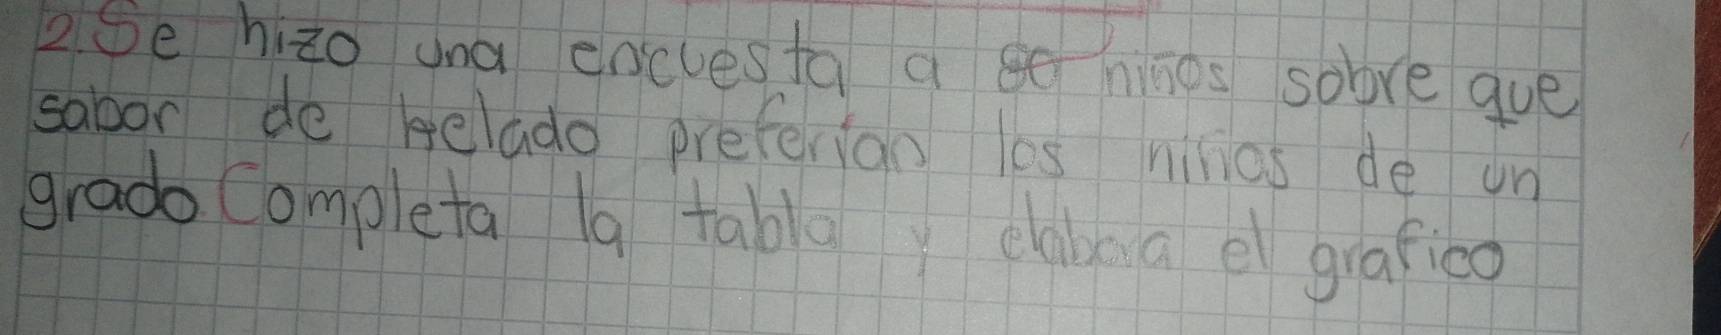 2. Se hizo una encuesta a niños sobre que
sabor de helado preferian los niños de un
grado. Completa la tabla y elabora el grafico